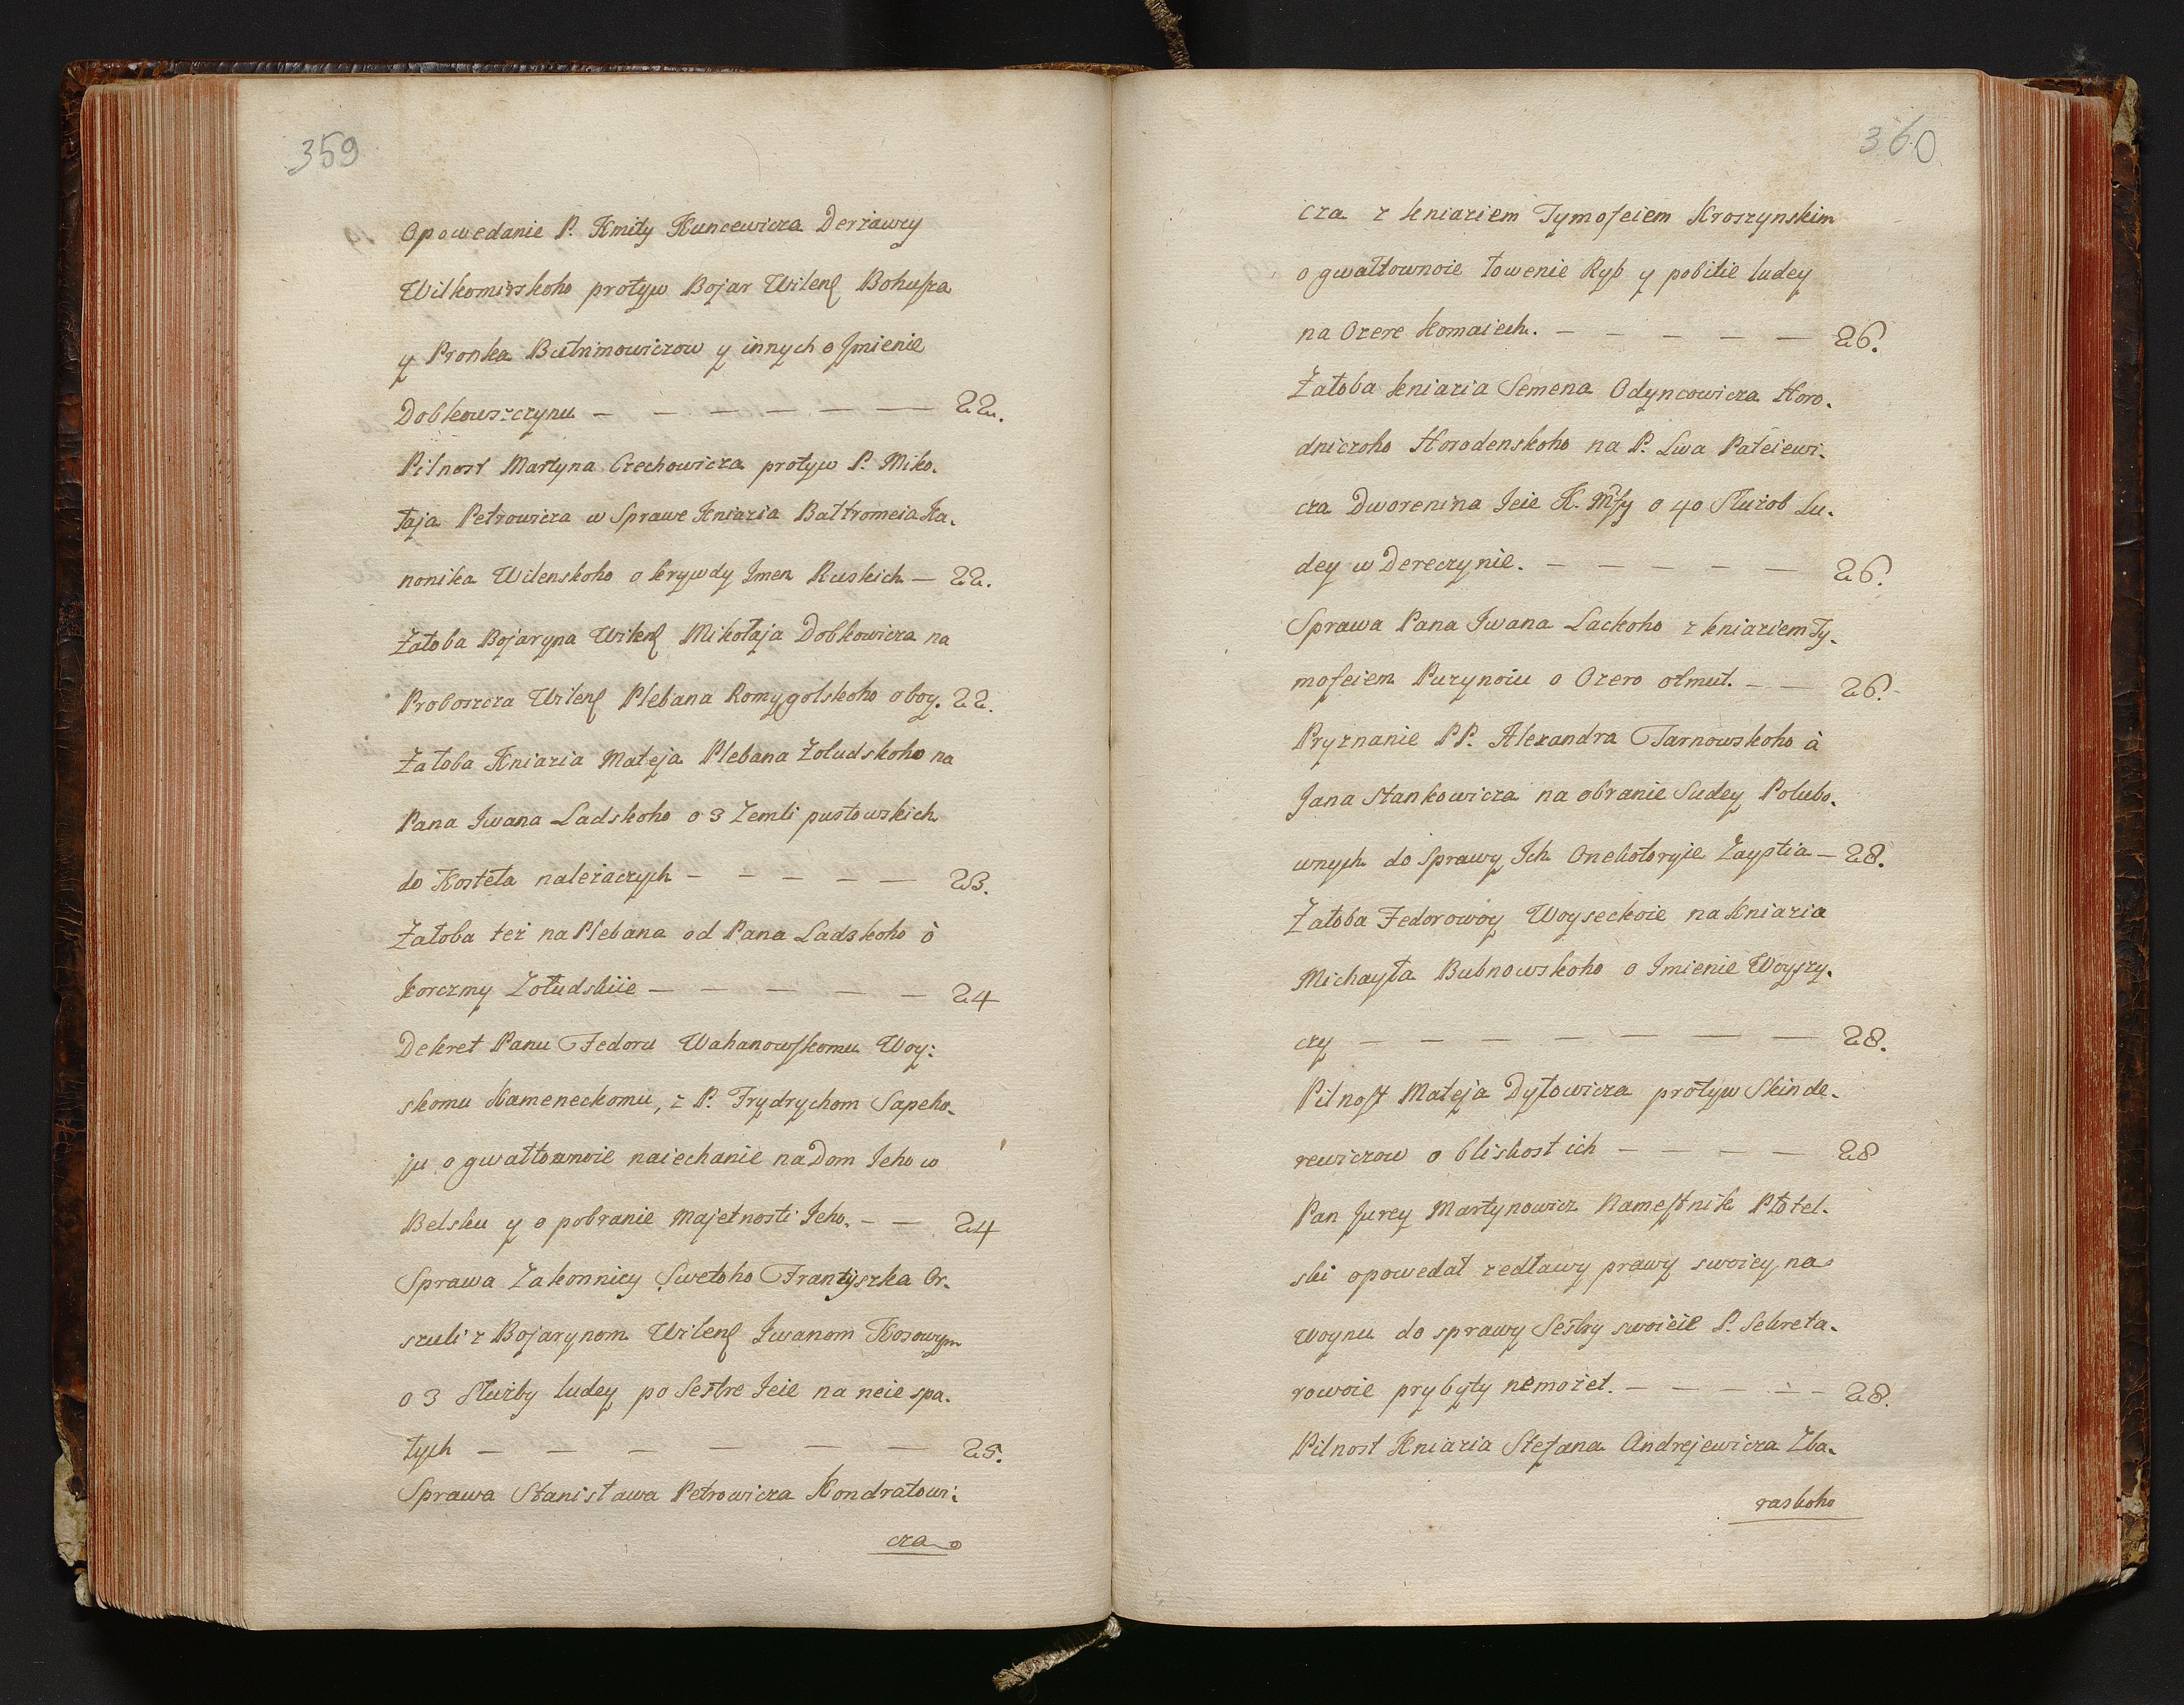 359
Opowedanie P. Kmity Kuncewicza Derżawcy
Wilkomirskoho protyw Bojar Wilenſ Bohuſza
y Pronka Butrimowiczow y innych o Jmienie
Dobkowszczynu — — — — — — 22.
Pilnost Martyna Czechowicza protyw P. Miko-
łaja Petrowicza w Sprawe Kniazia Bałtromeia Ka-
nonika Wilenskoho o krywdy Jmen Ruskich — 22.
Żałoba Bojaryna Wilenſ Mikołaja Dobkowicza na
Proboszcza Wilenſ Plebana Romygolskoho o boy. 22.
Żałoba Kniazia Mateja Plebana Żoludskoho na
Pana Jwana Ladskoho o 3 Zemli pustowskich
do Kosteła należaczych — — — — — 23.
Żałoba też na Plebana od Pana Ladskoho ò
Korczmy Żołudskiie — — — — — 24
Dekret Panu Fedoru Wahanowſkomu Woy:
skomu Kameneckomu, z P. Frydrychom Sapeho-
ju o gwałtownoie naiechanie na Dom Jeho w
Belsku y o pobranie Majetnosti Jeho. — — 24
Sprawa Zakonnicy Swetoho Frantyszka Or-
szuli z Bojarynom Wilenſ Jwanom Kosowym
o 3 Służby ludey po Sestre Jeie na neie spa-
łych — — — — — — 25.
Sprawa Stanisława Petrowicza Kondratowi:
cza
360
cza z kniaziem Tymofeiem Kroszynskim
o gwałtownoie łowenie Ryb y pobitie ludey
na Ozere Komaiech. — — — — — 26.
Żałoba kniazia Semena Odyncowicza Horo-
dniczoho Horodenskoho na P. Lwa Pateiewi-
cza Dworenina Jeie K. Mſy o 40 Służob Lu-
dey w Dereczynie. — — — — — 26.
Sprawa Pana Jwana Lackoho z kniaziem Ty-
mofeiem Puzynoiu o Ozero ołmut. — — 26.
Pryznanie PP. Alexandra Tarnowskoho à
Jana Stankowicza na obranie Sudey Polubo-
wnych do Sprawy Jch Onekotoryje Zaystia — 28.
Żałoba Fedorowoy Woyseckoie na Kniazia
Michayła Bubnowskoho o Jmienie Woyszy-
czy — — — — — — — 28.
Pilnoſt Mateja Dyłowicza protyw Skinde-
rewiczow o bliskost ich — — — — 28
Pan Jurey Martynowicz Nameſtnik Płotel-
ski opowedał zedławy prawy swoiey na
Woynu do sprawy Sestry swoieie P. Sekreta-
rowoie prybyty nemożet. — — — — — 28.
Pilnost Kniazia Stefana Andrejewicza Zba-
raskoho